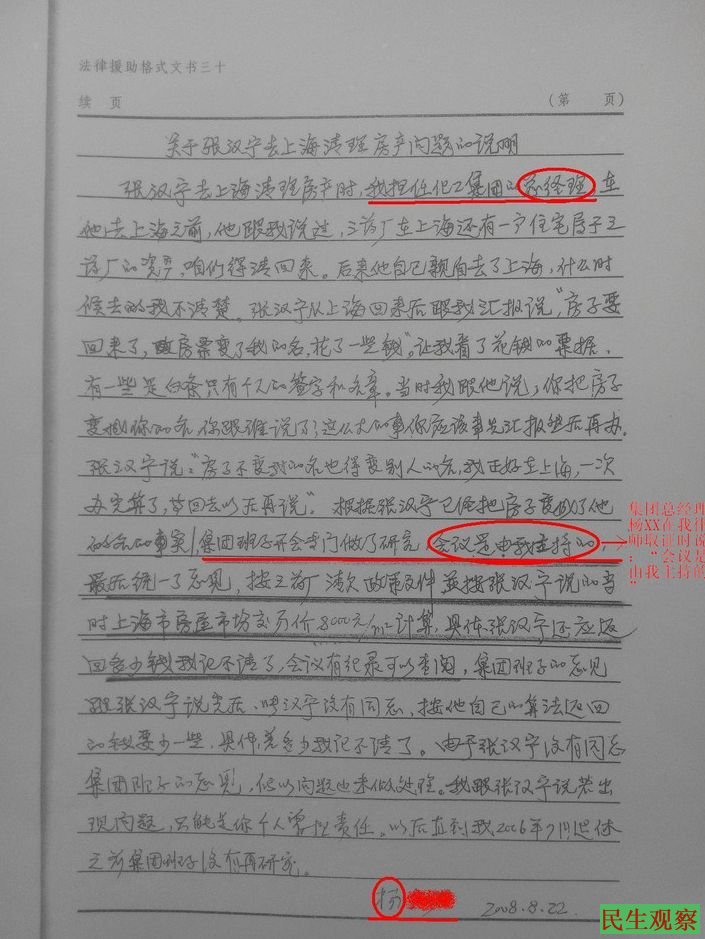 法律援助格式文书三十
续 页 (第 页)
关于张汉宁去上海清理房产问题的说明
张汉宁去上海清理房产时,我担任化工集团的总经理,在
他去上海之前,他跟我说过,三药厂在上海还有一户住宅房子三
药厂的资产,咱们得清回来。后来他自己亲自去了上海,什么时
候去的我不清楚。张汉宁从上海回来后跟我汇报说,“房子要
回来了,房票变了我的名,花了一些钱”。让我看了花钱的票据,
有一些是白条只有个人的签字和名章。当时我跟他说,你把房子
变成你的名,你跟谁说了?这么大的事你应该事先汇报然后再办。
张汉宁说:“房子不变我的名也得变别人的名,我正好在上海,一次
办完算了,等回去以后再说”。根据张汉宁已经把房子变成了他
的名的事实,集团班子开会专门做了研究,会议是由我主持的,
最后统一了意见,按三药厂清欠政策文件并按张汉宁说的当
时上海市房屋市场交易价8000元/m²计算,具体张汉宁还应返
回多少钱我记不清了,会议有纪录可以查阅,集团班子的意见
跟张汉宁说完后,张汉宁没有同意,按他自己的算法返回
的钱要少一些,具体差多少我记不清了。由于张汉宁没有同意
集团班子的意见,所以问题也未做处理。我跟张汉宁说若出
现问题,只能是你个人承担责任。以后直到我2006年9月退休
之前集团班子没有再研究。
杨
2008.8.22.
集团总经理
杨XX在我律
师取证时说
:“会议是
由我主持的
”
民生观察